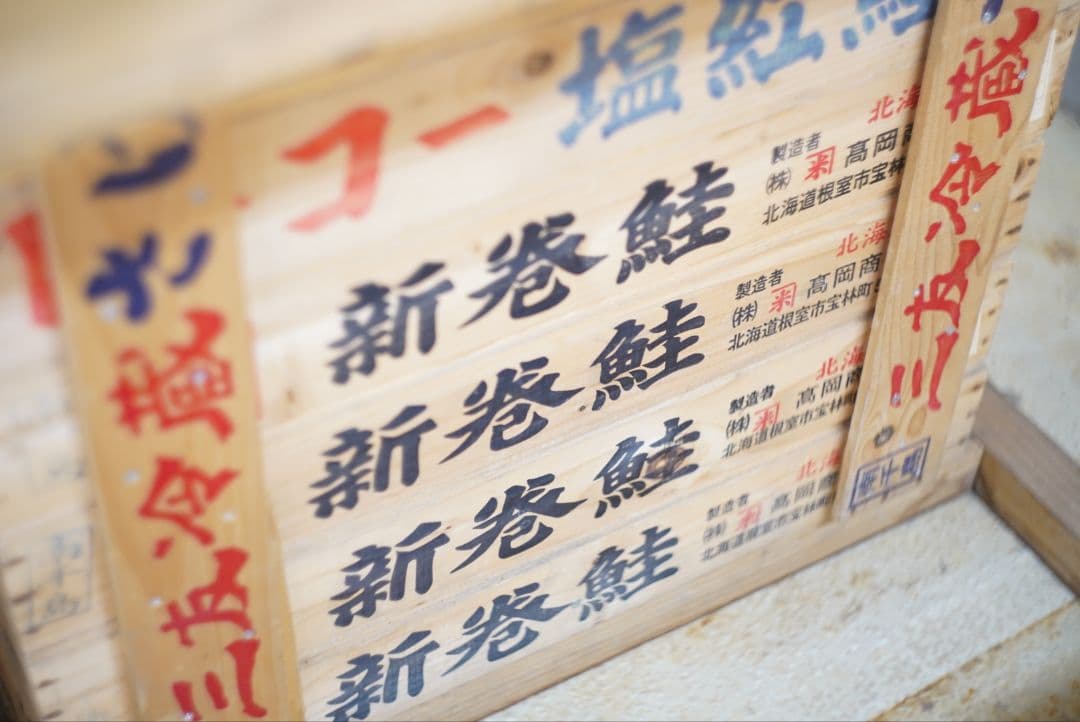 コー 塩紅
新巻鮭
製造者 北海
(株) 髙岡商
北海道根室市宝林
新巻鮭
製造者 北海
(株) 髙岡商
北海道根室市宝林町
新巻鮭
製造者 北海
(株) 髙岡商
北海道根室市宝林
新巻鮭
製造者 北海
(株) 髙岡商
北海道根室市宝林
蔵冷五三
蔵冷五三